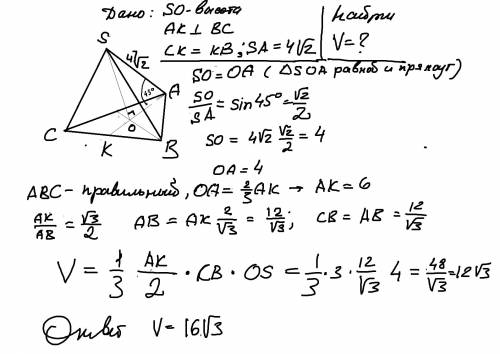 Дано: SO-высота
AK ⊥ BC
CK = KB; SA = 4√2
Найти
V = ?
S
4√2
45°
A
C
O
K
B
SO = OA (△SOA равноб и прямоуг)
SO/SA = sin 45° = √2/2
SO = 4√2 √2/2 = 4
OA = 4
ABC - правильный, OA = 2/3 AK → AK = 6
AK/AB = √3/2 AB = AK 2/√3 = 12/√3; CB = AB = 12/√3
V = 1/3 AK/2 · CB · OS = 1/3 · 3 · 12/√3 4 = 48/√3 = 12√3
Ответ V = 16√3